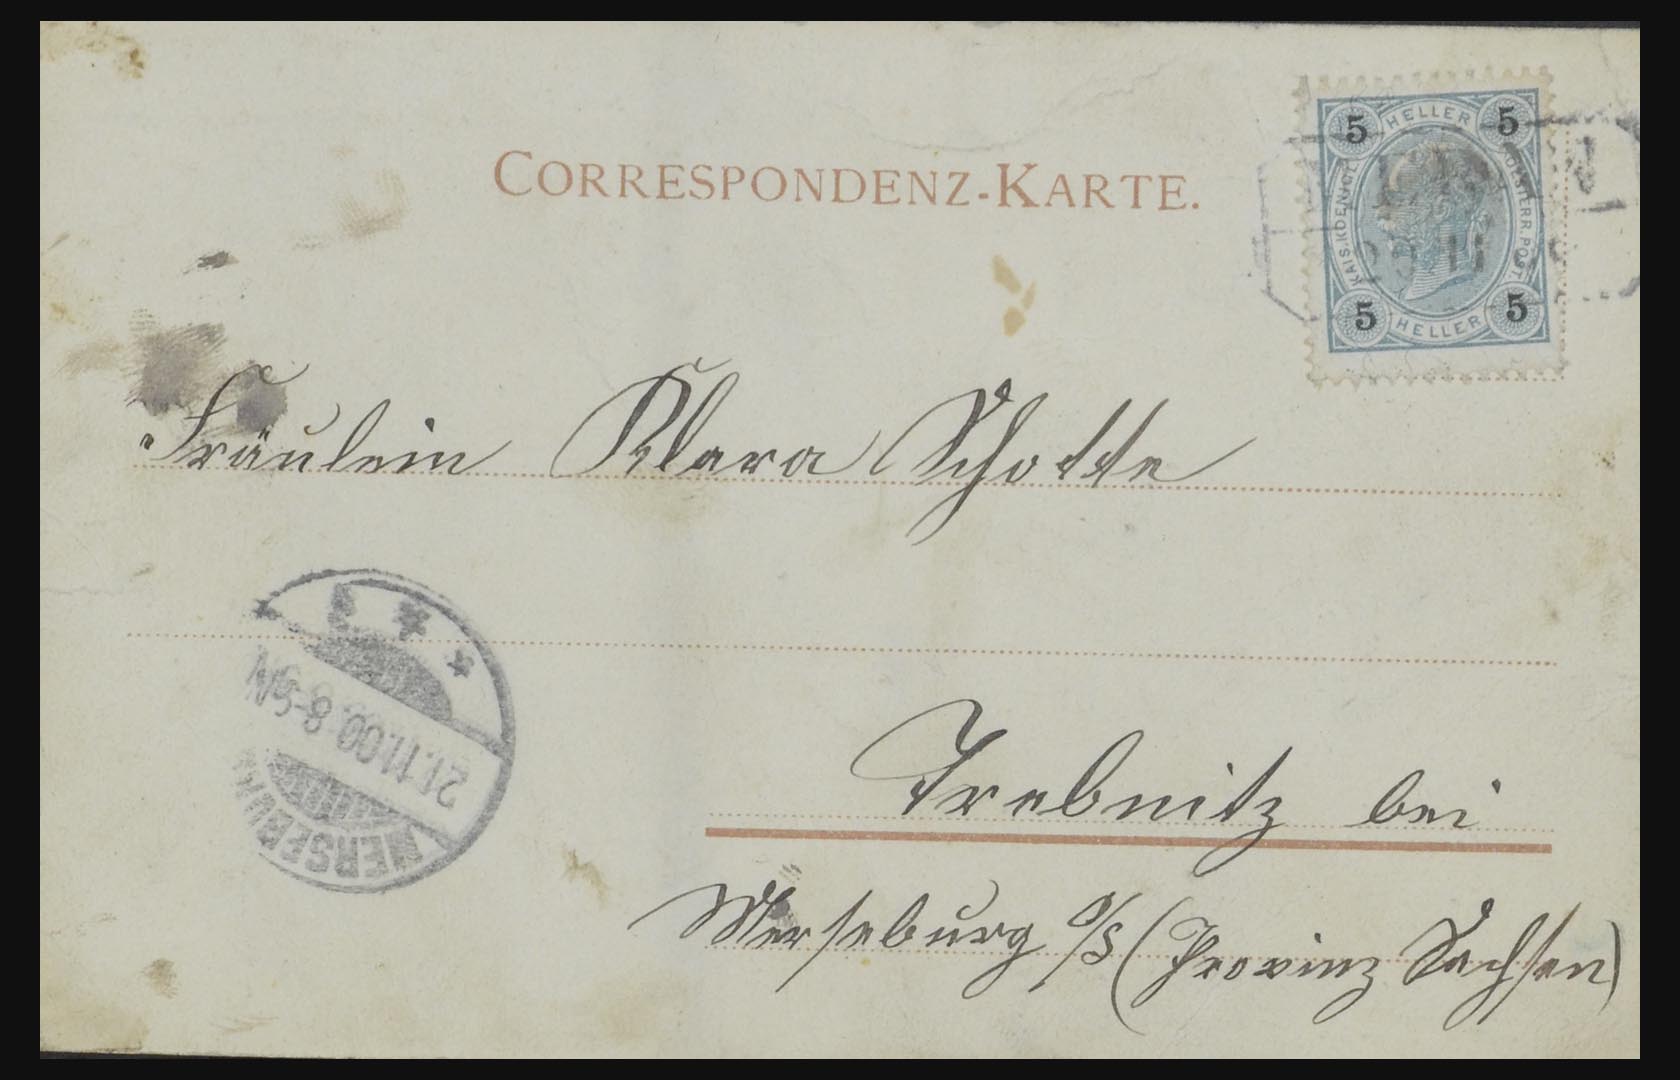 CORRESPONDENZ-KARTE.
5 HELLER 5
KAIS. KOENIGL. OESTERR. POST.
5 HELLER 5
Fräulein Klara Schotte
21.11.00. 8-9N
MERSEBURG
Trebnitz bei
Merseburg a/S (Provinz Sachsen)